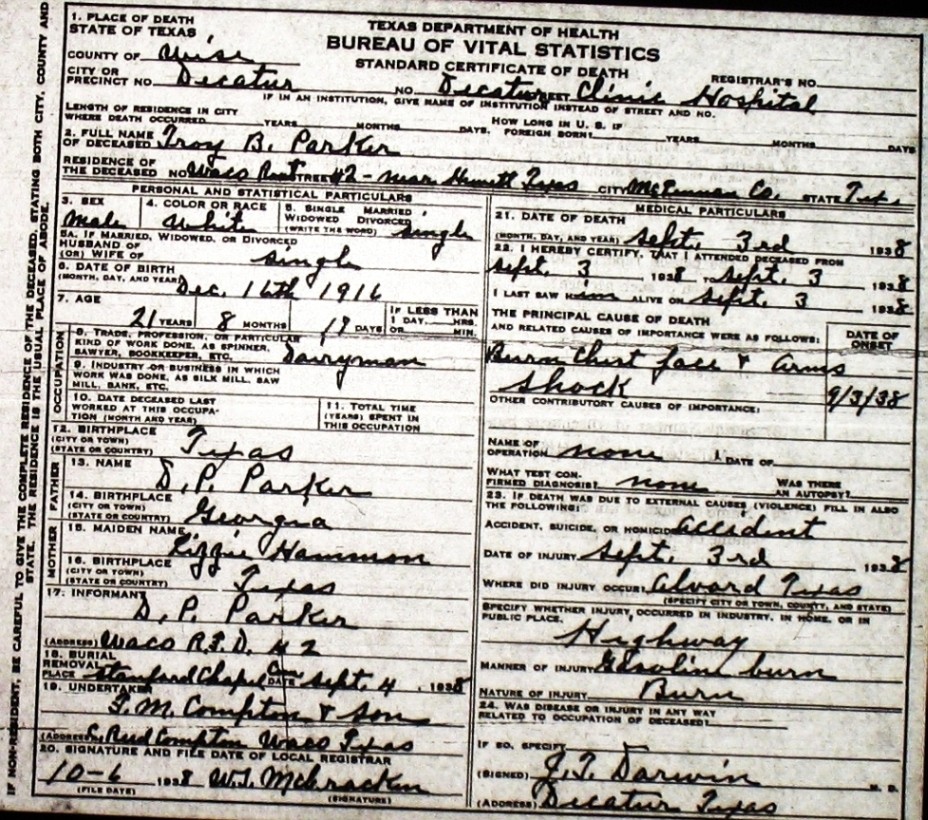 TEXAS DEPARTMENT OF HEALTH
BUREAU OF VITAL STATISTICS
STANDARD CERTIFICATE OF DEATH
1. PLACE OF DEATH
STATE OF TEXAS
COUNTY OF Wise
REGISTRAR'S NO.
CITY OR PRECINCT NO. Decatur NO. Decatur STREET Clinic Hospital
IF IN AN INSTITUTION, GIVE NAME OF INSTITUTION INSTEAD OF STREET AND NO.
LENGTH OF RESIDENCE IN CITY WHERE DEATH OCCURRED YEARS MONTHS DAYS. HOW LONG IN U. S. IF FOREIGN BORN? YEARS MONTHS DAYS
2. FULL NAME OF DECEASED Troy B. Parker
RESIDENCE OF THE DECEASED NO. Waco STREET #2 - near Hewitt Texas CITY McLennan Co. STATE Tex.
PERSONAL AND STATISTICAL PARTICULARS
3. SEX
male
4. COLOR OR RACE
white
5. SINGLE MARRIED WIDOWED DIVORCED (WRITE THE WORD) single
5A. IF MARRIED, WIDOWED, OR DIVORCED
HUSBAND OF
(OR) WIFE OF single
6. DATE OF BIRTH
(MONTH, DAY, AND YEAR) Dec. 16th 1916
7. AGE
21 YEARS 8 MONTHS 17 DAYS
IF LESS THAN 1 DAY, HRS. OR MIN.
OCCUPATION
8. TRADE, PROFESSION, OR PARTICULAR KIND OF WORK DONE, AS SPINNER, SAWYER, BOOKKEEPER, ETC. Dairyman
9. INDUSTRY OR BUSINESS IN WHICH WORK WAS DONE, AS SILK MILL, SAW MILL, BANK, ETC.
10. DATE DECEASED LAST WORKED AT THIS OCCUPATION (MONTH AND YEAR)
11. TOTAL TIME (YEARS) SPENT IN THIS OCCUPATION
12. BIRTHPLACE
(CITY OR TOWN)
(STATE OR COUNTRY) Texas
FATHER
13. NAME
D. P. Parker
14. BIRTHPLACE
(CITY OR TOWN)
(STATE OR COUNTRY) Georgia
MOTHER
15. MAIDEN NAME
Lizzie Hammon
16. BIRTHPLACE
(CITY OR TOWN)
(STATE OR COUNTRY) Texas
17. INFORMANT
D. P. Parker
(ADDRESS) Waco R.F.D. #2
18. BURIAL REMOVAL
PLACE Stanford Chapel DATE Sept. 4, 1938
19. UNDERTAKER
Compton & Son
(ADDRESS) Reed Compton Waco Texas
20. SIGNATURE AND FILE DATE OF LOCAL REGISTRAR
10-6 1938 McCracken
(FILE DATE) (SIGNATURE)
MEDICAL PARTICULARS
21. DATE OF DEATH
(MONTH, DAY, AND YEAR) Sept. 3rd 1938
22. I HEREBY CERTIFY, THAT I ATTENDED DECEASED FROM
Sept. 3 1938 TO Sept. 3 1938
I LAST SAW Him ALIVE ON Sept. 3 1938
THE PRINCIPAL CAUSE OF DEATH AND RELATED CAUSES OF IMPORTANCE WERE AS FOLLOWS:
DATE OF ONSET
Burn Chest face & Arms
Shock 9/3/38
OTHER CONTRIBUTORY CAUSES OF IMPORTANCE:
NAME OF OPERATION none DATE OF
WHAT TEST CONFIRMED DIAGNOSIS? none WAS THERE AN AUTOPSY?
23. IF DEATH WAS DUE TO EXTERNAL CAUSES (VIOLENCE) FILL IN ALSO THE FOLLOWING:
ACCIDENT, SUICIDE, OR HOMICIDE accident
DATE OF INJURY Sept. 3rd 1938
WHERE DID INJURY OCCUR? Alvord Texas
(SPECIFY CITY OR TOWN, COUNTY, AND STATE)
SPECIFY WHETHER INJURY OCCURRED IN INDUSTRY, IN HOME, OR IN PUBLIC PLACE.
Highway
MANNER OF INJURY Gasoline burn
NATURE OF INJURY Burn
24. WAS DISEASE OR INJURY IN ANY WAY RELATED TO OCCUPATION OF DECEASED?
IF SO, SPECIFY
(SIGNED) J. T. Darwin M. D.
(ADDRESS) Decatur Texas
IF NON-RESIDENT, BE CAREFUL TO GIVE THE COMPLETE RESIDENCE OF THE DECEASED, STATING BOTH CITY, COUNTY AND
STATE. THE RESIDENCE IS THE USUAL PLACE OF ABODE.